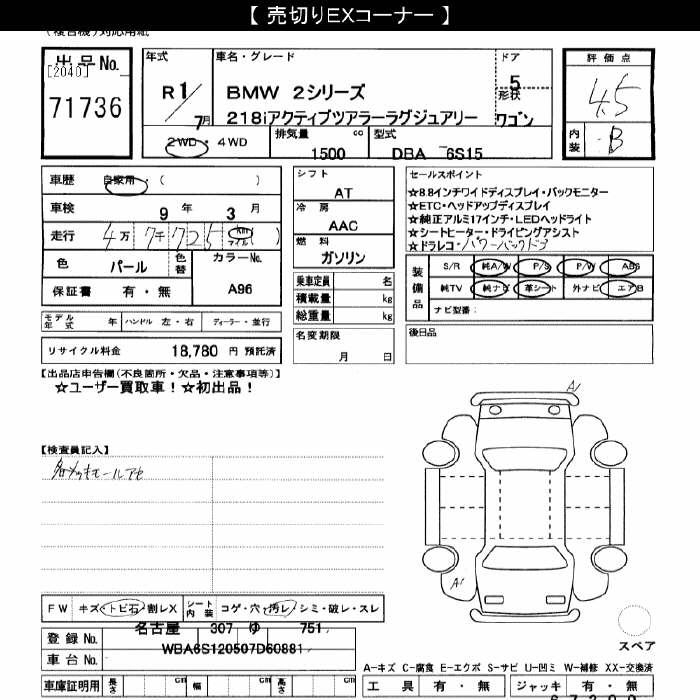 【 売切りEXコーナー 】
(複合機)対応用紙
出品No.
[2040]
71736
年式
R1/7月
車名・グレード
BMW 2シリーズ
218iアクティブツアラーラグジュアリー
ドア
5
形状
ワゴン
評価点
4.5
内装
B
2WD・4WD
排気量 cc
1500
型式
DBA 6S15
車歴 自家用・( )
車検 9 年 3 月
走行 4万7千725 km マイル
色 パール
色替
カラーNo.
A96
保証書 有・無
モデル年式 年 ハンドル 左・右 ディーラー・並行
リサイクル料金 18,780 円 預託済
シフト
AT
冷房
AAC
燃料
ガソリン
乗車定員 名
積載量 kg
総重量 kg
名変期限
月 日
セールスポイント
☆8.8インチワイドディスプレイ・バックモニター
☆ETC・ヘッドアップディスプレイ
☆純正アルミ17インチ・LEDヘッドライト
☆シートヒーター・ドライビングアシスト
☆ドラレコ・パワーバックドア
装備品
S/R 純A/W P/S P/W ABS
純TV 純ナビ 革シート 外ナビ エアB
ナビ型番:
後日品
【出品店申告欄(不良箇所・欠品・注意事項等)】
☆ユーザー買取車!☆初出品!
【検査員記入】
A
A
FW キズ・トビ石・割レX
シート内装 コゲ・穴・汚レ・シミ・破レ・スレ
登録No. 名古屋 307 ゆ 751
車台No. WBA6S120507D60881
車庫証明用 長さ cm 幅 cm 高さ cm
スペア
A-キズ C-腐食 E-エクボ S-サビ U-凹ミ W-補修 XX-交換済
工具 有・無 ジャッキ 有・無